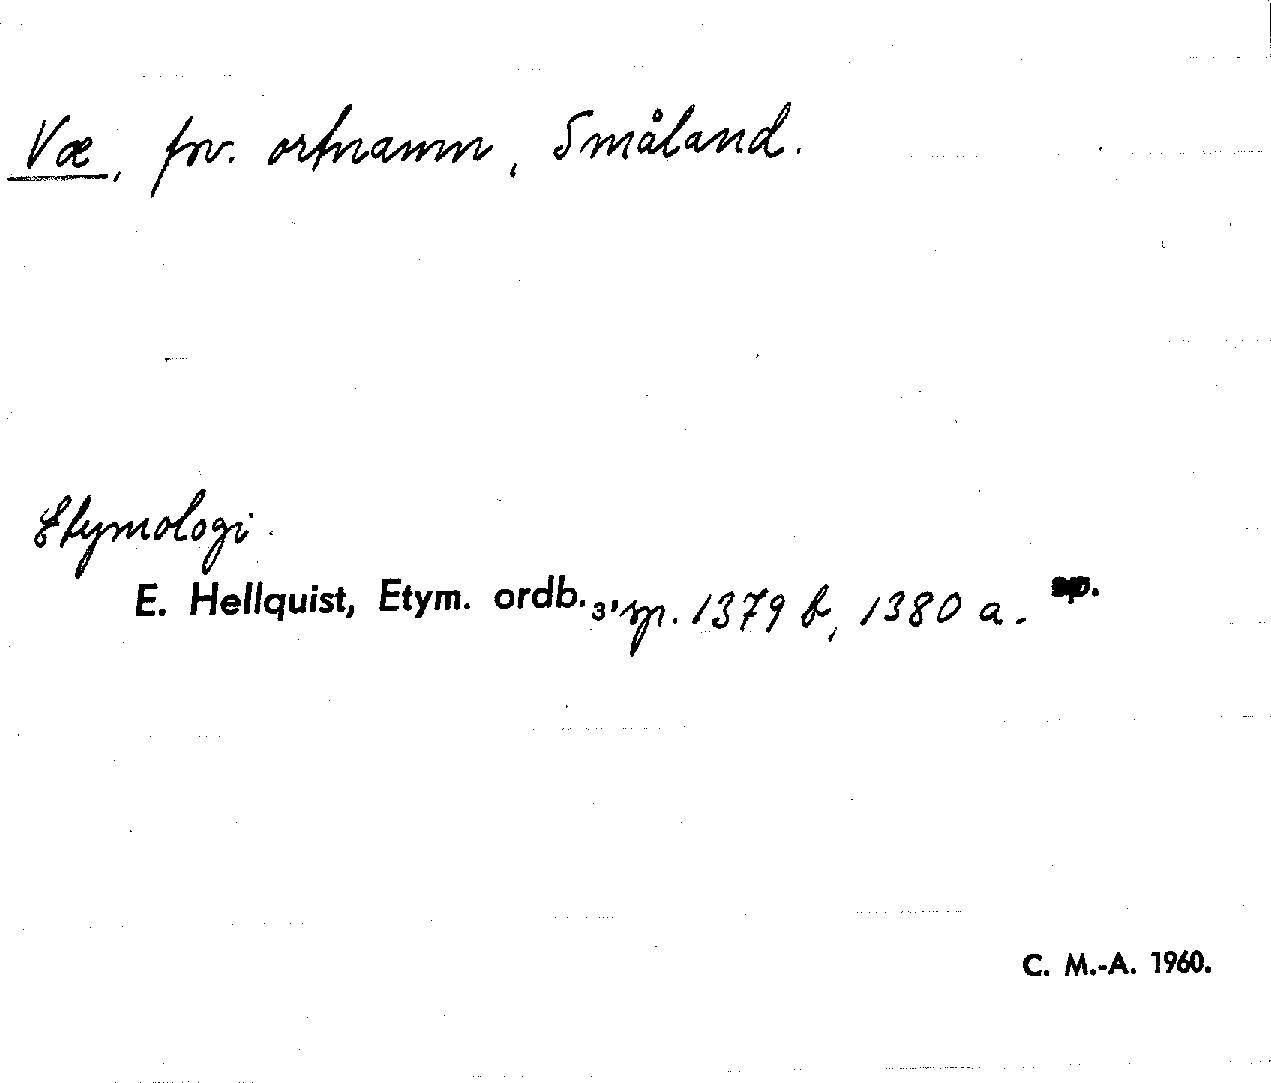 Væ, fnv. ortnamn, Småland.
Etymologi.
E. Hellquist, Etym. ordb. 3, sp. 1379 b, 1380 a. sp.
C. M.-A. 1960.